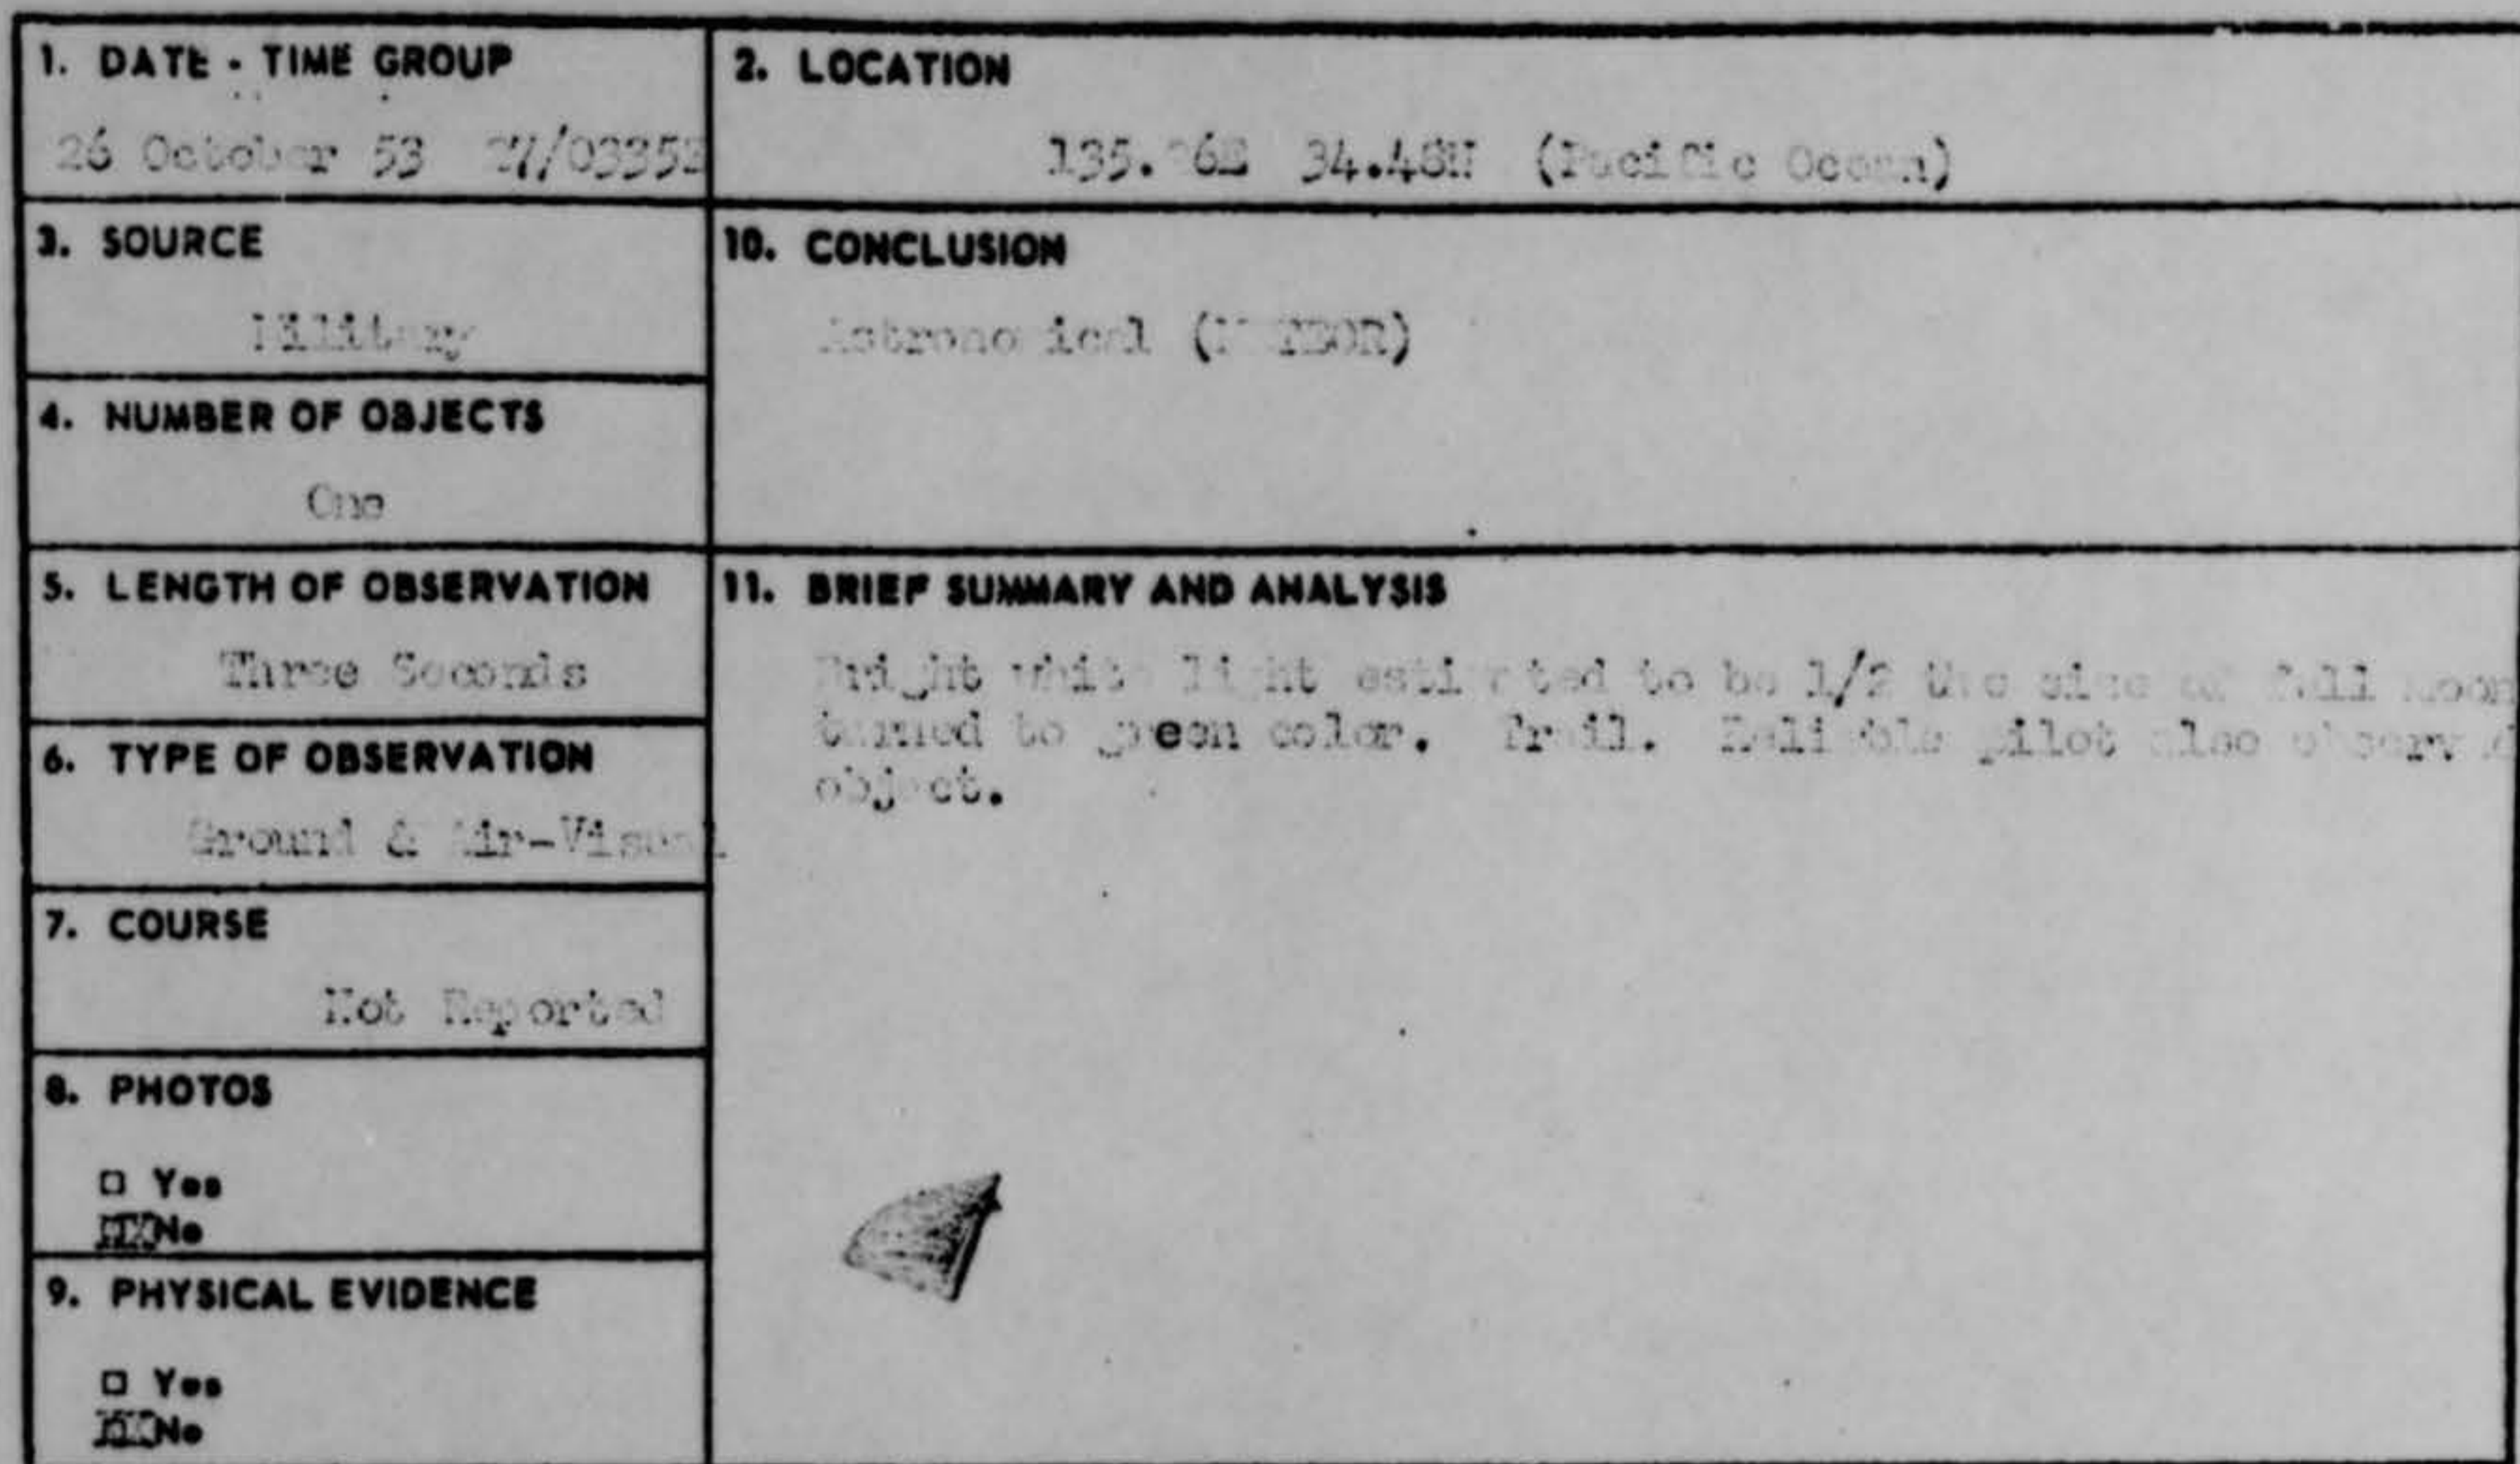 1. DATE - TIME GROUP
26 October 53 27/0335Z
2. LOCATION
34.48N (Pacific Ocean)
3. SOURCE
Military
10. CONCLUSION
Astronomical (METEOR)
4. NUMBER OF OBJECTS
One
5. LENGTH OF OBSERVATION
Three Seconds
11. BRIEF SUMMARY AND ANALYSIS
Bright white light estimated to be 1/2 the size of full moon
turned to green color. Trail. Reliable pilot also observed
object.
6. TYPE OF OBSERVATION
Ground & Air-Visual
7. COURSE
Not Reported
8. PHOTOS
□ Yes
No
9. PHYSICAL EVIDENCE
□ Yes
No